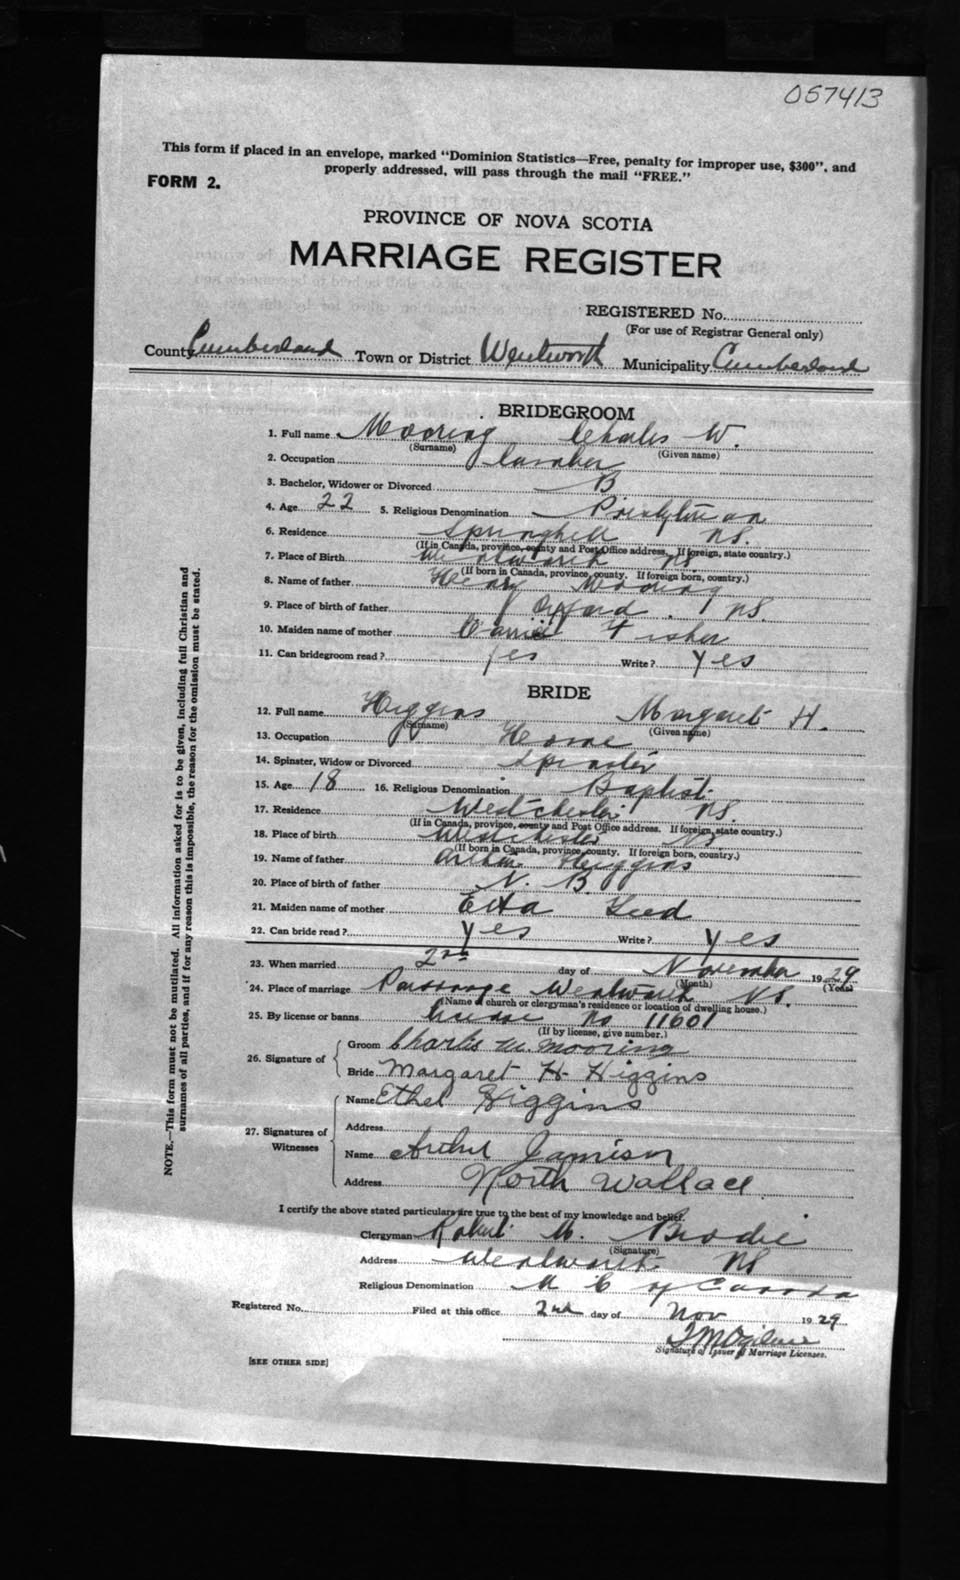 057413
This form if placed in an envelope, marked "Dominion Statistics—Free, penalty for improper use, $300", and
properly addressed, will pass through the mail "FREE."
FORM 2.
PROVINCE OF NOVA SCOTIA
MARRIAGE REGISTER
REGISTERED No.
(For use of Registrar General only)
County Cumberland Town or District Wentworth Municipality Cumberland
BRIDEGROOM
1. Full name Mooring Charles W.
(Surname) (Given name)
2. Occupation
3. Bachelor, Widower or Divorced B
4. Age 22 5. Religious Denomination Presbyterian
6. Residence Springhill NS.
(If in Canada, province, county and Post Office address. If foreign, state country.)
7. Place of Birth Wentworth NS
(If born in Canada, province, county. If foreign born, country.)
8. Name of father Henry Mooring
9. Place of birth of father Oxford. NS.
10. Maiden name of mother Fisher
11. Can bridegroom read? Yes Write? Yes
BRIDE
12. Full name Higgins Margaret H.
(Surname) (Given name)
13. Occupation Home
14. Spinster, Widow or Divorced Spinster
15. Age 18 16. Religious Denomination Baptist.
17. Residence Westchester NS.
(If in Canada, province, county and Post Office address. If foreign, state country.)
18. Place of birth Westchester NS.
(If born in Canada, province, county. If foreign born, country.)
19. Name of father Arthur Higgins
20. Place of birth of father N. B.
21. Maiden name of mother Etta
22. Can bride read? Yes Write? Yes
23. When married 2nd day of November 1929
(Month) (Year)
24. Place of marriage Parsonage Wentworth NS.
(Name of church or clergyman's residence or location of dwelling house.)
25. By license or banns License No 11601
(If by license, give number.)
26. Signature of Groom Charles W. Mooring
Bride Margaret H Higgins
27. Signatures of Witnesses
Name Ethel Higgins
Address
Name Arthur Jamison
Address North Wallace.
I certify the above stated particulars are true to the best of my knowledge and belief.
Clergyman Robert M. Brodie
(Signature)
Address Wentworth NS
Religious Denomination U C of Canada
Registered No. Filed at this office 2nd day of Nov 1929
Signature of Issuer of Marriage Licenses.
[SEE OTHER SIDE]
NOTE.—This form must not be mutilated. All information asked for is to be given, including full Christian and
surnames of all parties, and if for any reason this is impossible, the reason for the omission must be stated.